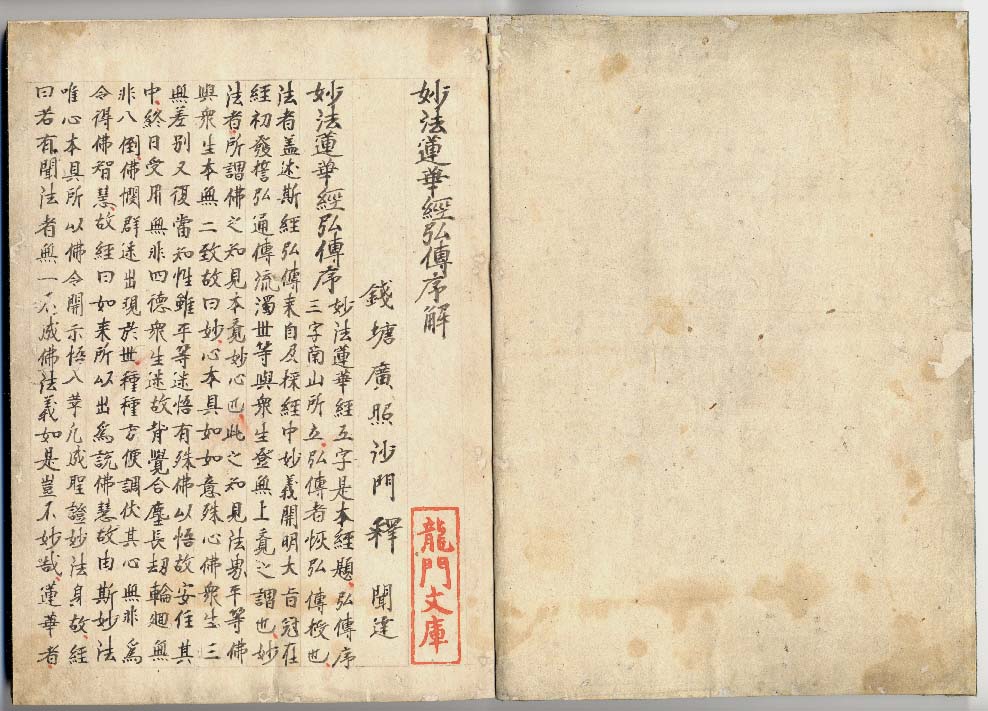 妙法蓮華經弘傳序解
錢塘廣照沙門釋 聞達
龍門文庫
妙法蓮華經弘傳序
妙法蓮華經五字是本經題弘傳序
三字南山所立弘傳者恢弘傳授也
法者盖述斯經弘傳來自及採經中妙義開明大旨冠在
經初發誓弘通傳流濁世等與衆生登無上覔之謂也妙
法者所謂佛之知見本覔妙心也此之知見法界平等佛
與衆生本無二致故曰妙心本具如如意殊心佛衆生三
無差别又復當知性雖平等迷悟有殊佛以悟故安住其
中終日受用無非四德衆生迷故背覺合塵長刼輪廻無
非八倒佛憫群迷出現於世種種方便調伏其心無非爲
令得佛智慧故經曰如來所以出爲説佛慧故由斯妙法
唯心本具所以佛令開示悟入革凡成聖證妙法身故經
曰若有聞法者無一不成佛法義如是豈不妙哉蓮華者